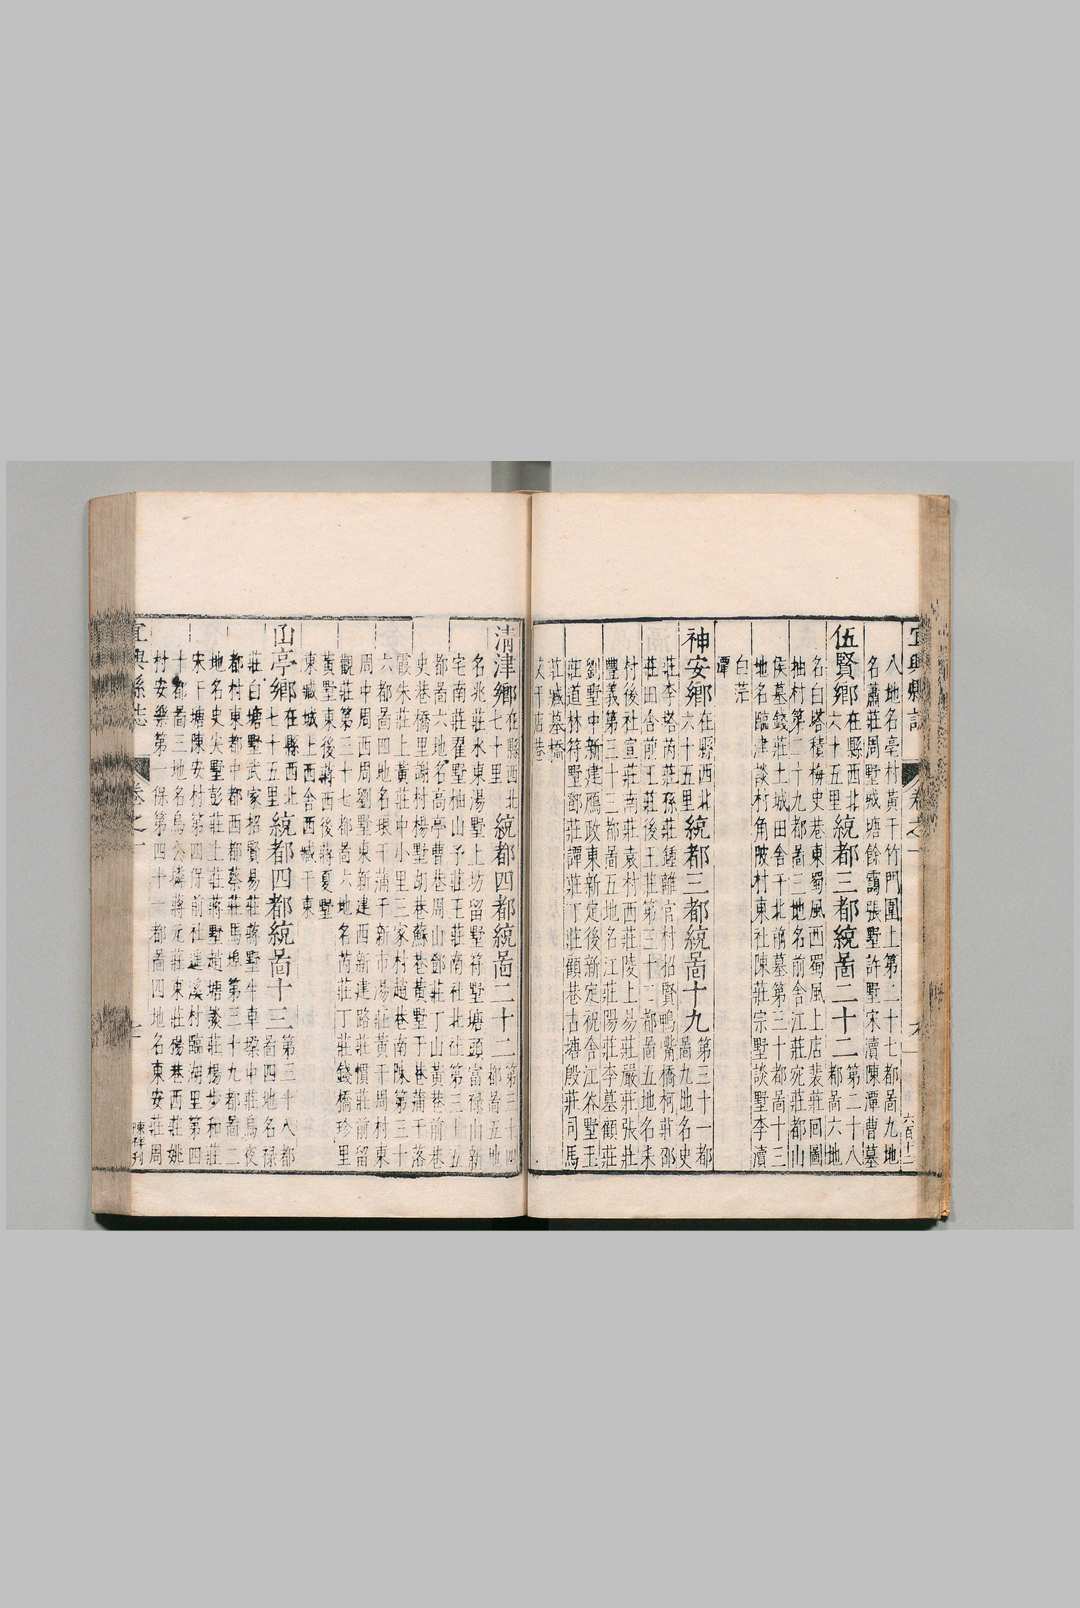 八地名亭村黃干竹門圍上第二十七都啚九地
名蕭莊周墅城塘餘靄張墅許墅宋瀆陳潭曹墓
伍賢鄉在縣西北六十五里統都三都統啚二十二第二十八都啚六地
名白塔積梅史巷東蜀風西蜀風上店裴莊回圖
柚村第二十九都啚三地名前舍江莊宛莊都山
侯墓錢莊土城田舍干北前墓第三十都啚十三
地名臨津談村角陂村東社陳莊宗墅談墅李瀆
白茫
潭
神安鄉在縣西北六十五里統都三都統啚十九第三十一都啚九地名史
莊李塔芮莊孫莊鍾離官村招賢鴨觜橋柯莊邵
莊田舍前王莊後王莊第三十二都啚五地名朱
村後社宣莊南莊袁村西莊陵上易莊嚴莊張莊
豐義第三十三都啚五地名江莊陽莊李墓顧莊
劉墅中新建鴈政東新定後新定祝舍江夲墅王
莊道林符墅鄧莊譚莊丁莊顧巷古塘殷莊司馬
莊臧墓橋
干塘巷
清津鄉在縣西北七十里統都四都統啚二十二第三十四都啚五地
名兆莊水東湯墅上坊留墅符墅塘頭富祿山新
宅南莊翟墅柚山予莊王莊南社北社第三十五
都啚六地名高亭曹巷周山鄒莊丁山黃巷前巷
史巷橋里謝村楊墅胡巷蘇巷黃墅于巷蒲干落
霞朱莊上黃莊中小里三家村趙巷南陳第三十
六都啚四地名環干蒲干新市湯莊黃干周村東
周中周西周劉墅東新建西新建路莊慣莊前留
觀莊第三十七都啚六地名芮莊丁莊錢橋珍里
黃墅東後蔣西後蔣夏墅
東臧城上西舍西臧干東
山亭鄉在縣西北七十五里統都四都統啚十三第三十八都啚四地名祿
莊白塘墅武家招賢易莊蔣墅牛車墚中莊馬夜
都村東都中都西都蔡莊馬堽第三十九都啚二
地名史尖墅彭莊上莊蔣墅趙塘談莊場步和莊
宋干塘陳安村第四保前社進溪村臨湖里第四
十都啚三地名烏公橋蔣元莊東莊楊巷西莊姚
村安樂第一保第四十一都啚四地名東安莊周
宜興縣志
卷之一